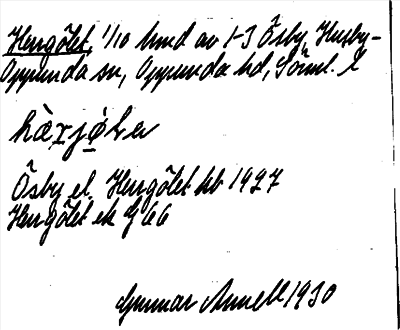 Herrgölet, 1/10 hmd av 1-3 Ösby, Husby-
Oppunda sn, Oppunda hd, Söml. l
hàrjø̀len
Ösby el. Herrgölet hb 1927
Herrgölet ek
Gunnar Annell 1930